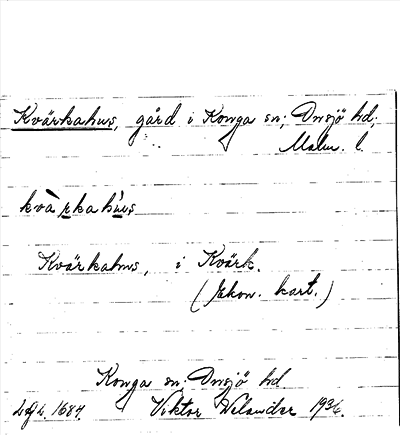 Kvärkahus, gård i Konga sn; Onsjö hd;
Malm. l.
kvàrkahùs
Kvärkahus, i Kvärk.
(Ekon. kart.)
Konga sn; Onsjö hd
1684. Viktor Welander 1936.